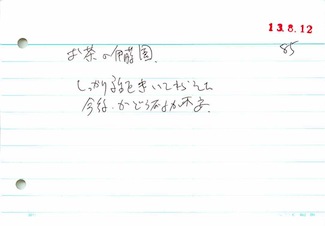 13.8.12
85
お茶の伊藤園.
しっかり話をきいてもらえた
今後.かどうなるか不安.